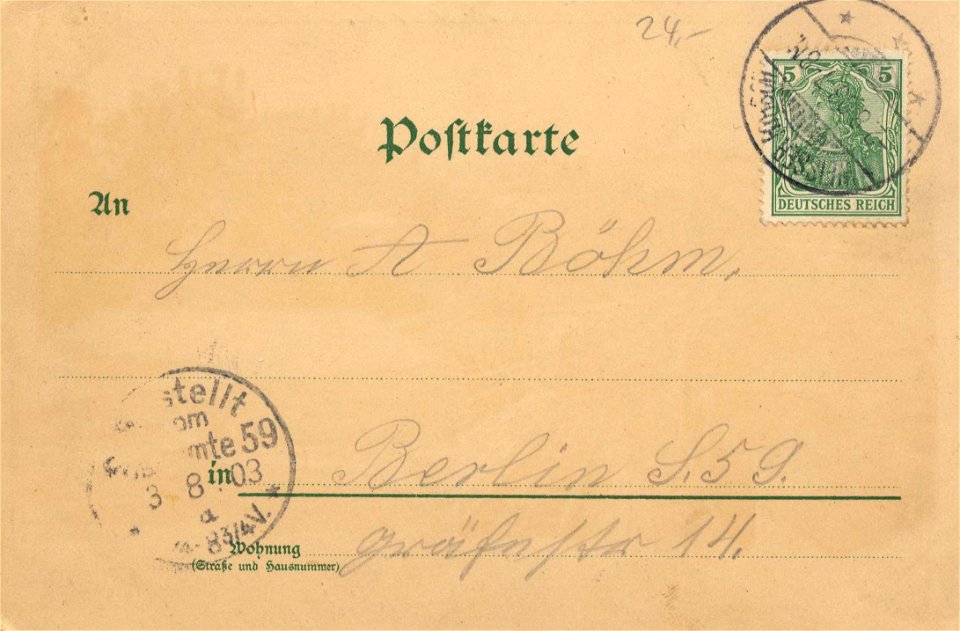 24,-
5 5
Postkarte
DEUTSCHES REICH
An
Herrn A Böhm,
stellt
om
mte 59
in Berlin S. 59.
3 8 03
8 3/4 V.
Wohnung gräfestr 14.
(Straße und Hausnummer)